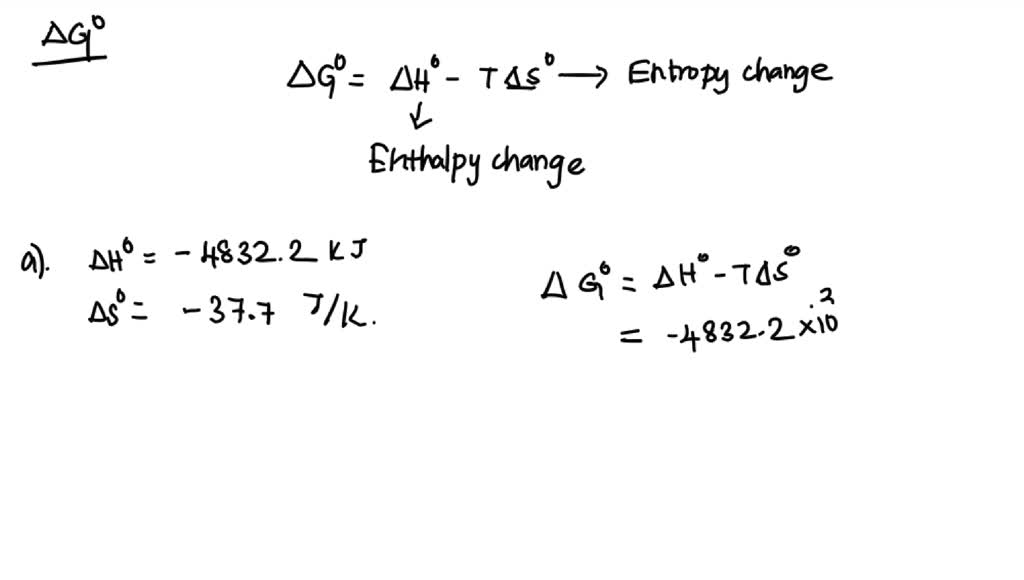 ΔG⁰
ΔG⁰ = ΔH⁰ - TΔS⁰ → Entropy change
↓
Enthalpy change
a). ΔH⁰ = -4832.2 KJ
ΔS⁰ = -37.7 J/K.
ΔG⁰ = ΔH⁰ - TΔS⁰
= -4832.2 ×10